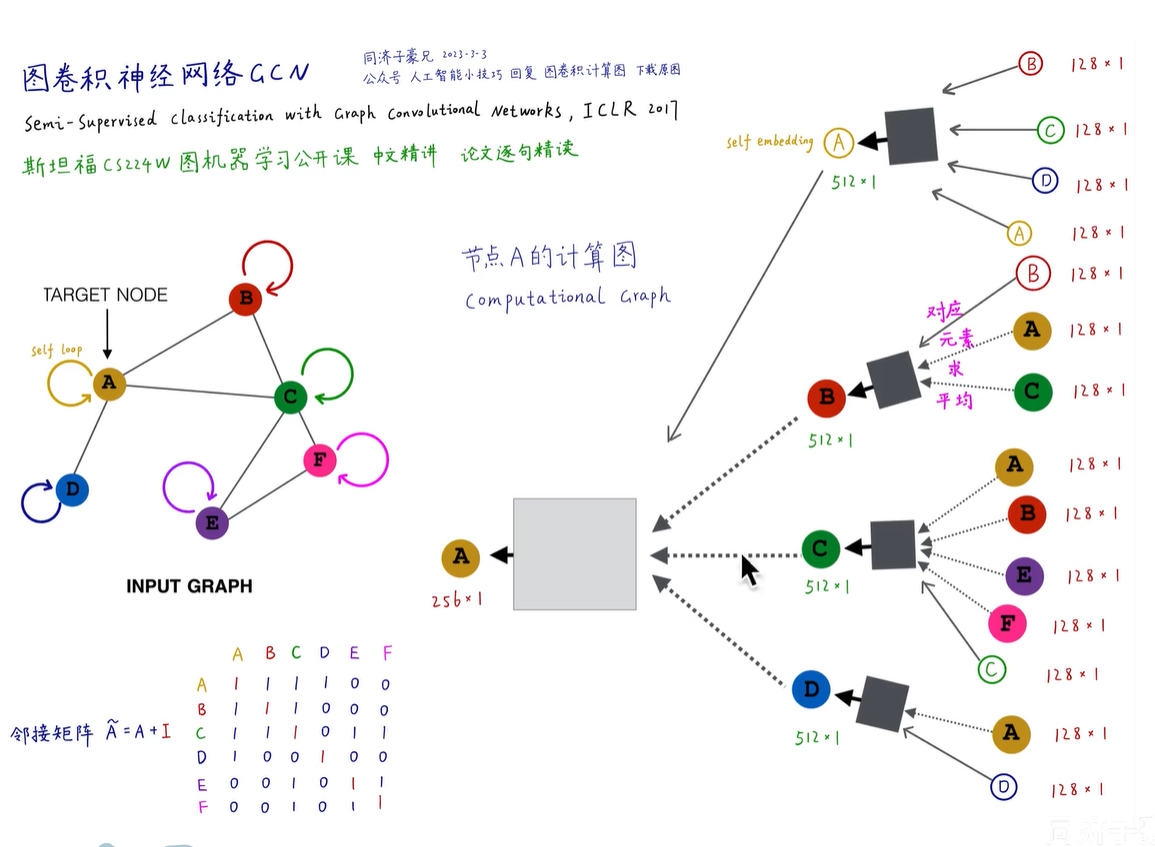 图卷积神经网络GCN
同济子豪兄 2023-3-3
公众号 人工智能小技巧 回复 图卷积计算图 下载原图
Semi-Supervised Classification with Graph Convolutional Networks, ICLR 2017
斯坦福CS224W图机器学习公开课 中文精讲 论文逐句精读
节点A的计算图
Computational Graph
TARGET NODE
self loop
A
B
C
D
E
F
INPUT GRAPH
邻接矩阵 Ã=A+I
A B C D E F
A 1 1 1 1 0 0
B 1 1 1 0 0 0
C 1 1 1 0 1 1
D 1 0 0 1 0 0
E 0 0 1 0 1 1
F 0 0 1 0 1 1
A
256×1
self embedding A
512×1
B 128×1
C 128×1
D 128×1
A 128×1
B
512×1
对应
元素
求
平均
B 128×1
A 128×1
C 128×1
C
512×1
A 128×1
B 128×1
E 128×1
F 128×1
C 128×1
D
512×1
A 128×1
D 128×1